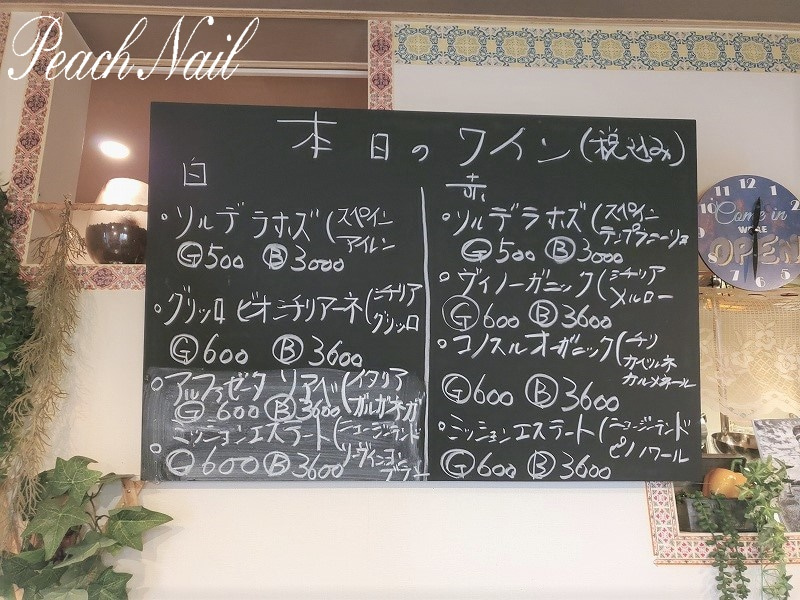 Peach Nail
本日のワイン(税込み)
白
・ソルデラホズ(スペイン
アイレン
Ⓖ500 Ⓑ3000
・グリッロ ビオシチリアーネ(シチリア
グリッロ
Ⓖ600 Ⓑ3600
・アルファゼータ ソアベ(イタリア
Ⓖ600 Ⓑ3600 ガルガネガ
・ミッションエステート(ニュージーランド
Ⓖ600 Ⓑ3600 ソーヴィニヨン
赤
・ソルデラホズ(スペイン
テンプラニーリョ
Ⓖ500 Ⓑ3000
・ヴィノーガニック(シチリア
メルロー
Ⓖ600 Ⓑ3600
・コノスルオーガニック(チリ
カベルネ
カルメネール
Ⓖ600 Ⓑ3600
・ミッションエステート(ニュージーランド
ピノノワール
Ⓖ600 Ⓑ3600
Come in
WE ARE
OPEN
12 1 2 3 4 5 6 7 8 9 10 11